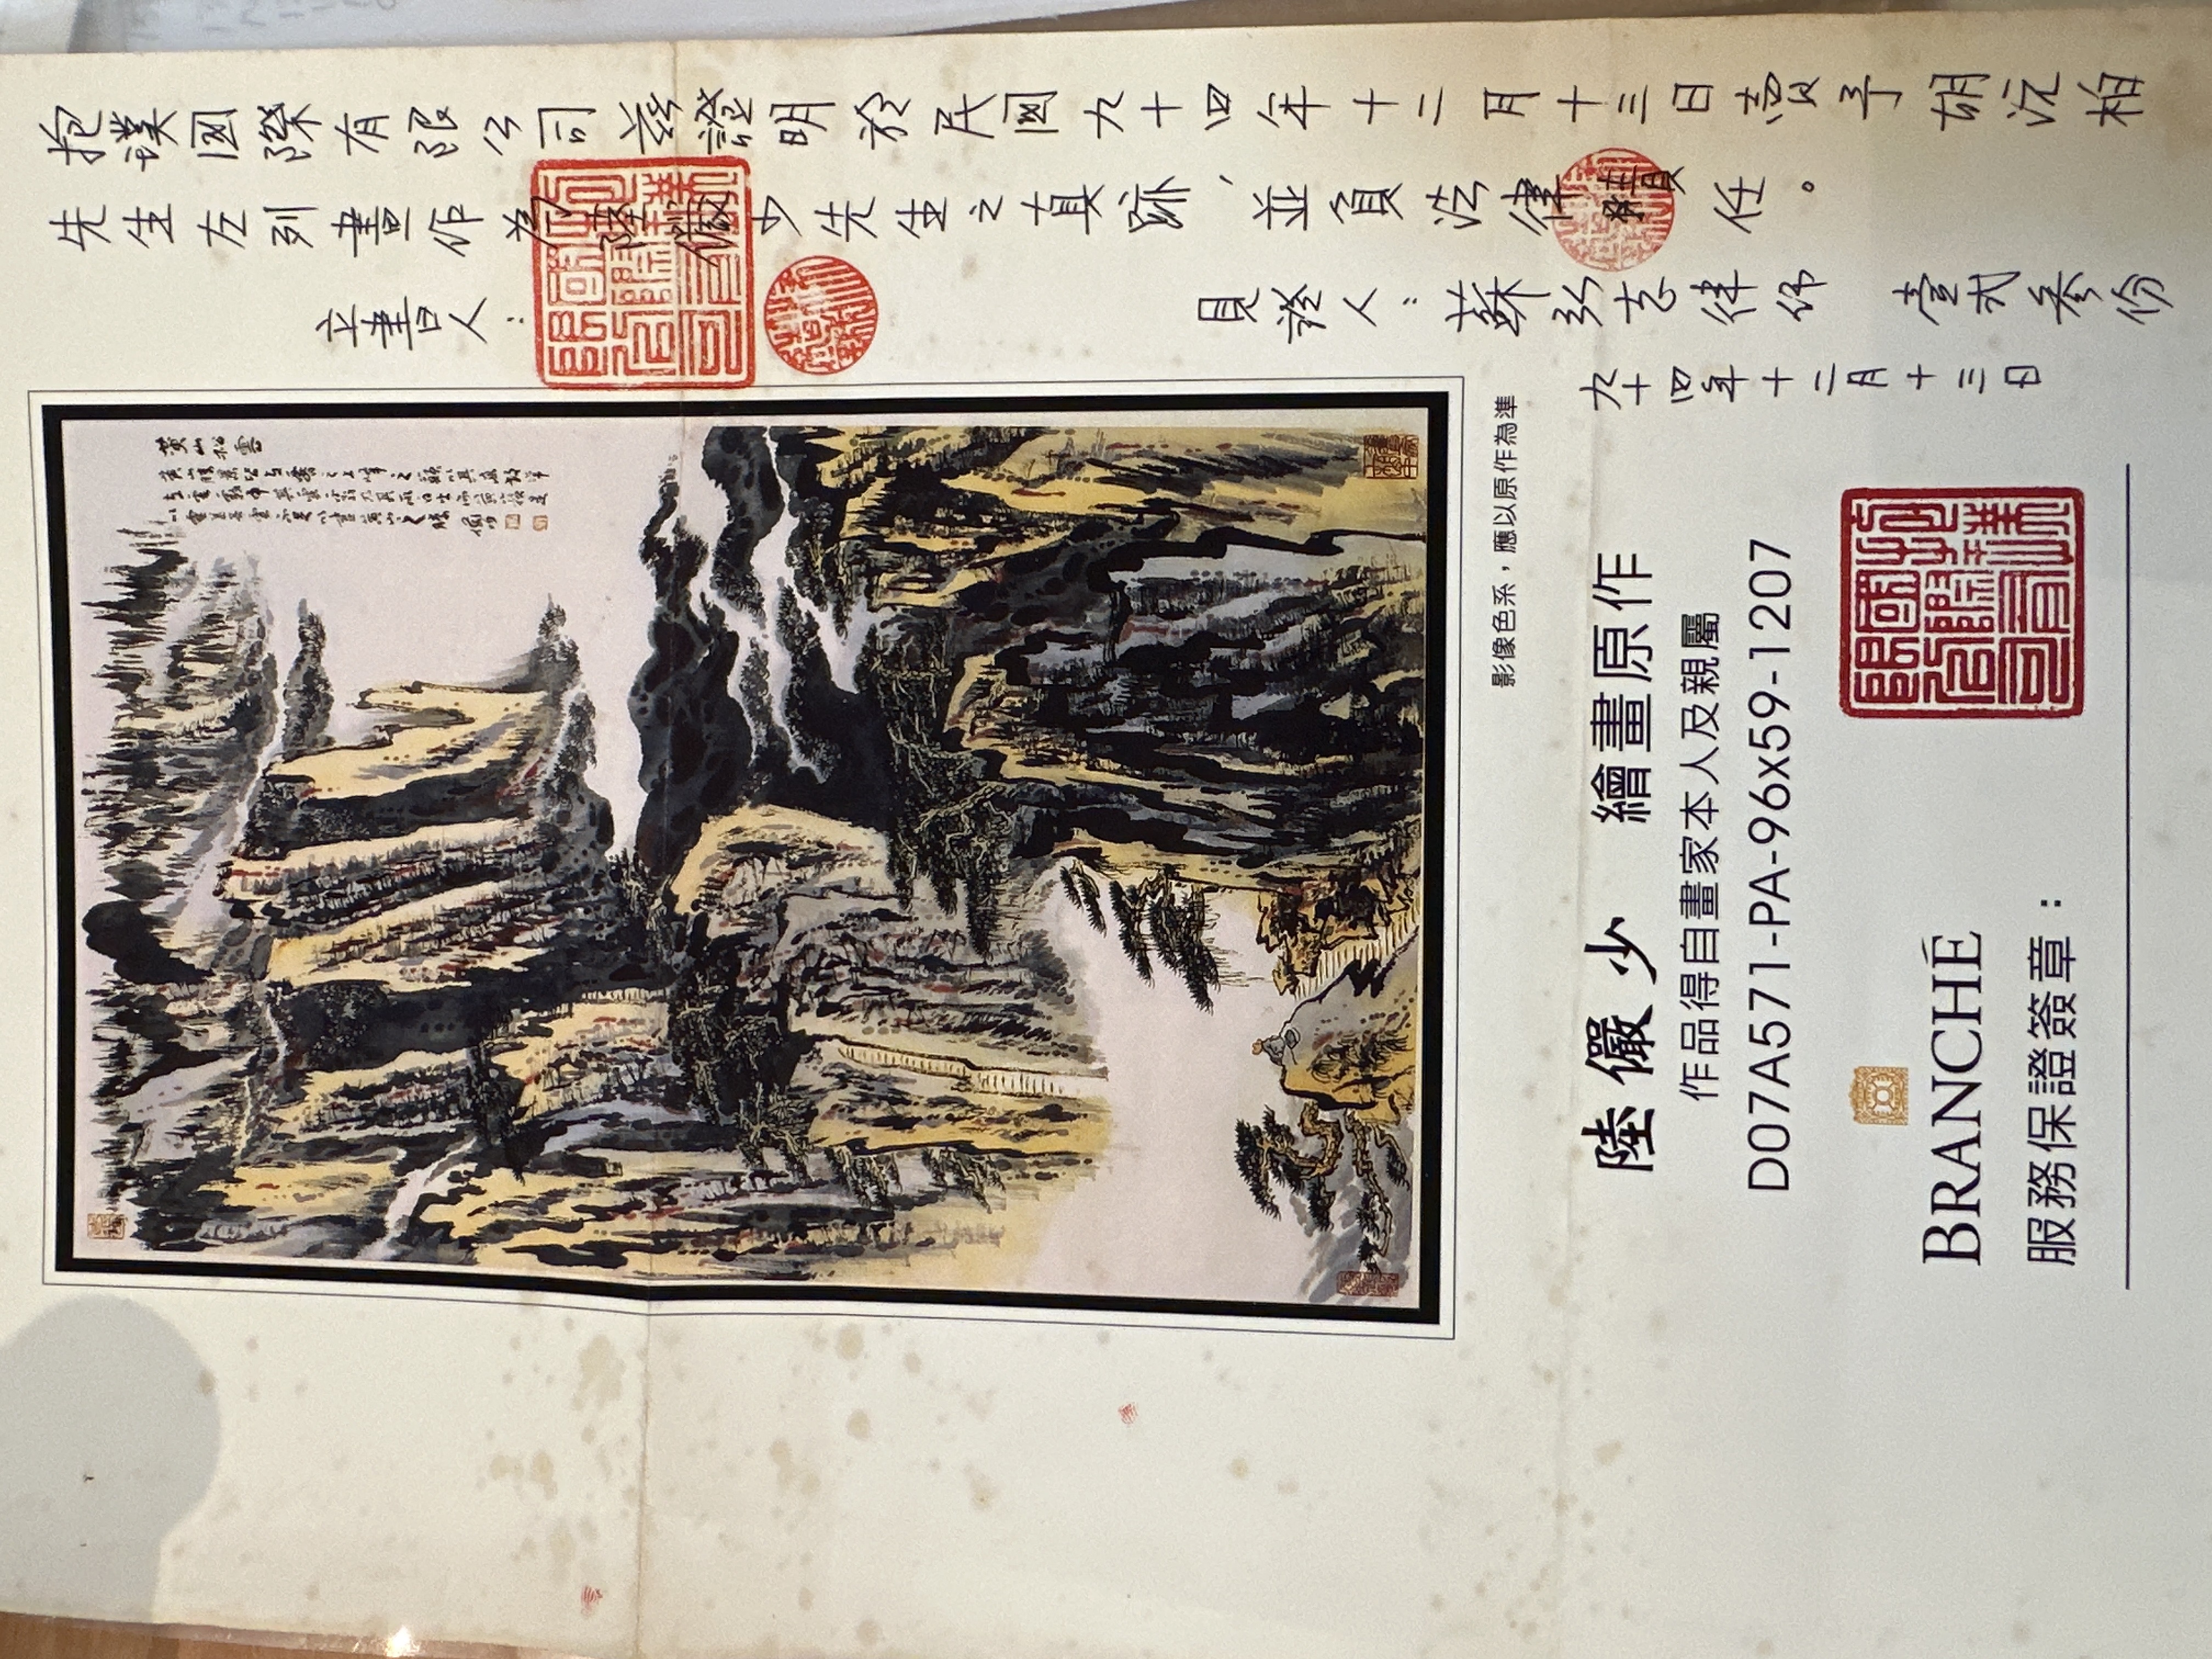 抱璞國際有限公司茲證明於民國九十四年十二月十三日賣予胡沅柏
先生左列畫作為陸儼少先生之真跡、並負法律責任。
立書人：
見證人：蘇弘志律師 壹式叁份
九十四年十二月十三日
黃山松雲
影像色系，應以原作為準
陸儼少 繪畫原作
作品得自畫家本人及親屬
D07A571-PA-96x59-1207
BRANCHÉ
服務保證簽章：